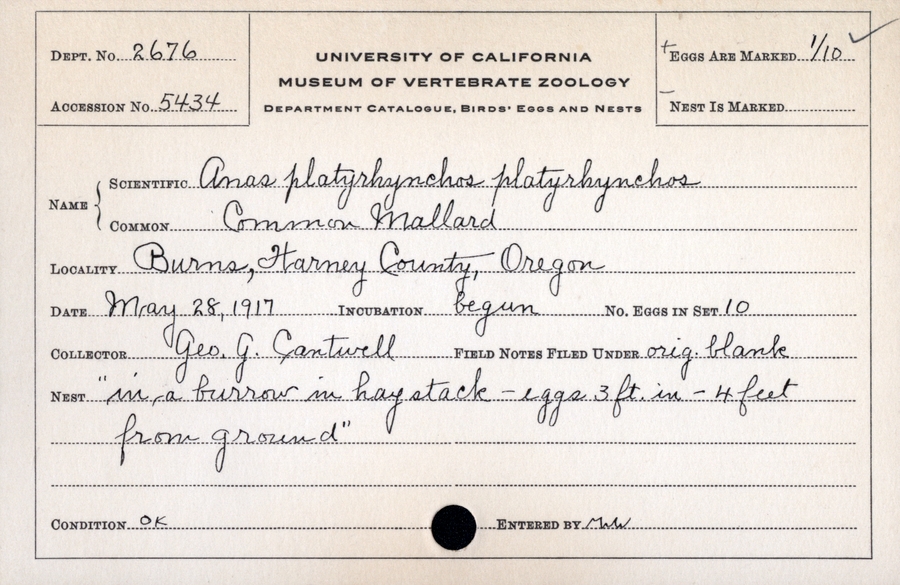 DEPT. No. 2676
ACCESSION No. 5434
UNIVERSITY OF CALIFORNIA
MUSEUM OF VERTEBRATE ZOOLOGY
DEPARTMENT CATALOGUE, BIRDS' EGGS AND NESTS
+ EGGS ARE MARKED 1/10 ✓
– NEST IS MARKED
NAME { SCIENTIFIC Anas platyrhynchos platyrhynchos
COMMON Common Mallard
LOCALITY Burns, Harney County, Oregon
DATE May 28, 1917 INCUBATION begun NO. EGGS IN SET 10
COLLECTOR Geo. G. Cantwell FIELD NOTES FILED UNDER orig. blank
NEST "in a burrow in haystack – eggs 3 ft. in – 4 feet
from ground"
CONDITION OK ENTERED BY